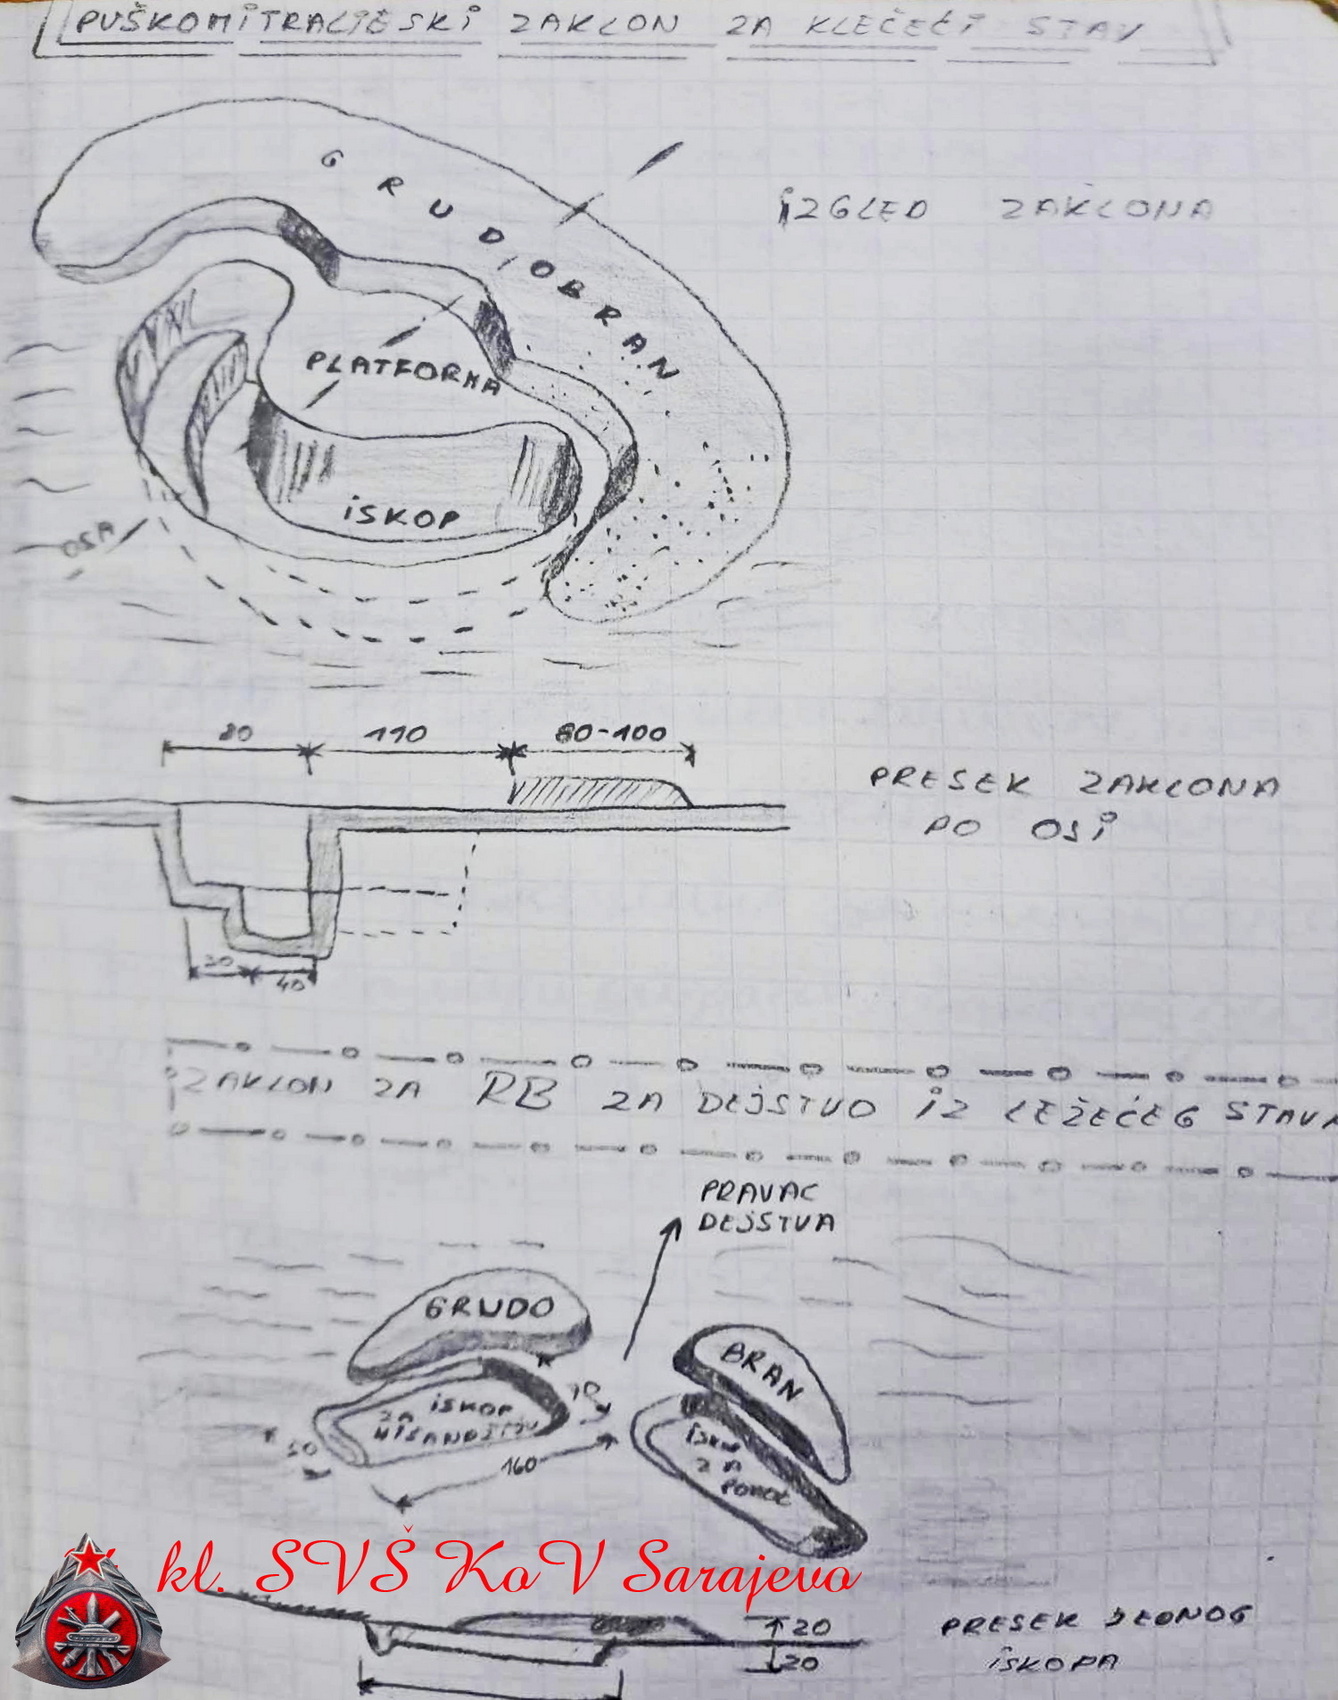 PUŠKOMITRALJESKI ZAKLON ZA KLEČEĆI STAV
IZGLED ZAKLONA
GRUDOBRAN
PLATFORMA
ISKOP
OSA
80 110 80-100
PRESEK ZAKLONA
PO OSI
40
ZAKLON ZA RB ZA DEJSTVO IZ LEŽEĆEG STAVA
PRAVAC
DEJSTVA
GRUDO
BRAN
ISKOP
ZA
NIŠANDŽIJU
ISKOP
ZA
POMOĆ
50
160
kl. SVŠ KoV Sarajevo
20
20
PRESEK JEDNOG
ISKOPA